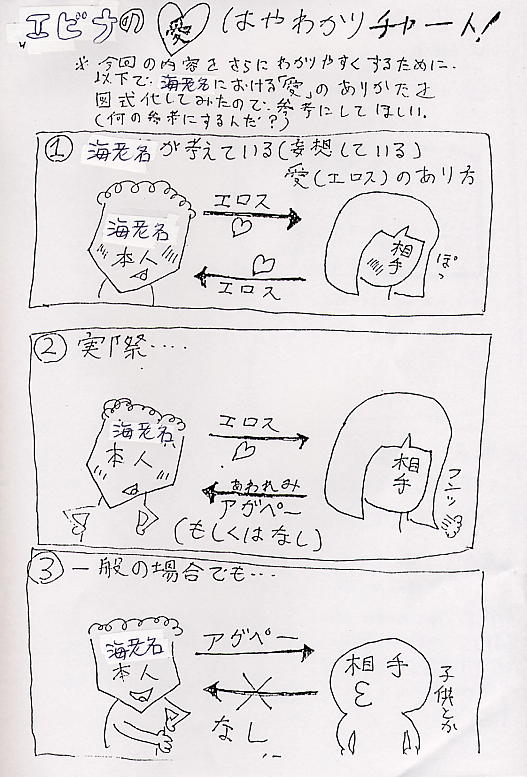 エビナの愛はやわかりチャート!
※今回の内容をさらにわかりやすくするために、
以下で、海老名における「愛」のありかたを
図式化してみたので、参考にしてほしい。
(何の参考にするんだ?)
① 海老名が考えている(妄想している)
愛(エロス)のあり方
海老名
本人
エロス
エロス
相手
ぽっ
② 実際‥‥
海老名
本人
エロス
あわれみ
アガペー
(もしくはなし)
相手
フンッ
③ 一般の場合でも…
海老名
本人
アガペー
なし
相手
子供とか